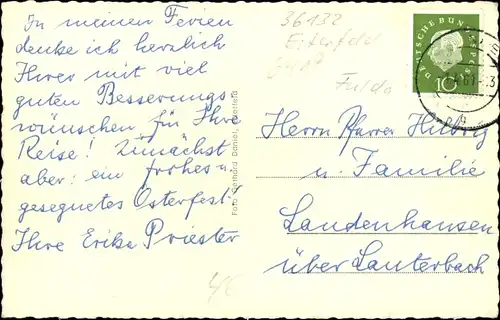 In meinen Ferien
denke ich herzlich
Ihrer mit viel
guten Besserungs
wünschen für Ihre
Reise! Zunächst
aber: ein frohes u.
gesegnetes Osterfest!
Ihre Erika Priester
36132
Eiterfeld
Fulda
DEUTSCHE BUNDESPOST
10
Foto Gerhard Daniel,
Herrn Pfarrer Hilbig
u. Familie
Landenhausen
über Lauterbach